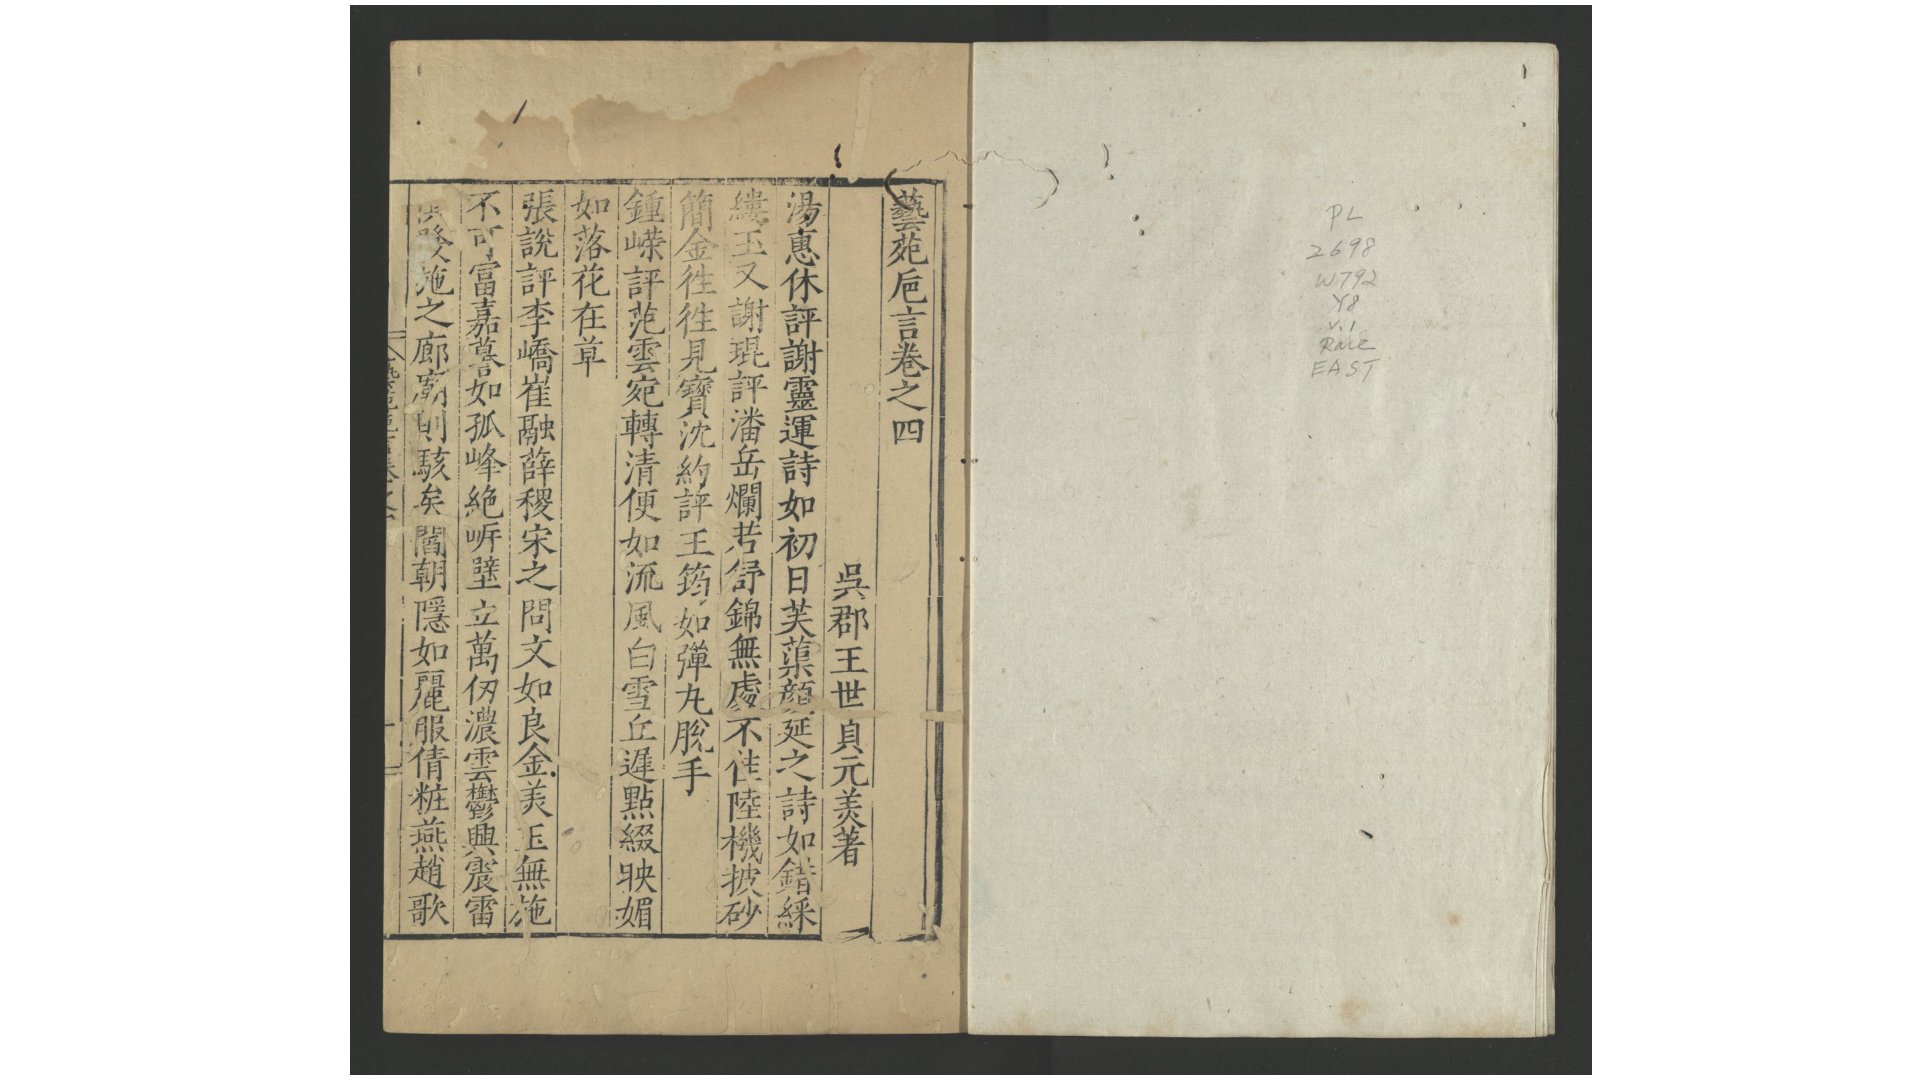 PL
2698
W792
Y8
v.1
Rare
EAST
藝苑巵言卷之四
吳郡王世貞元美著
湯惠休評謝靈運詩如初日芙蕖顔延之詩如錯綵
縷玉又謝琨評潘岳爛若舒錦無處不佳陸機披砂
簡金徃徃見寶沈約評王筠如彈丸脫手
鍾嶸評范雲宛轉清便如流風白雪丘遲點綴映媚
如落花在草
張說評李嶠崔融薛稷宋之問文如良金美玉無施
不可富嘉謩如孤峰絶岍壁立萬仞濃雲鬱興震雷
俱發施之廊廟則駭矣閻朝隱如麗服倩粧燕趙歌